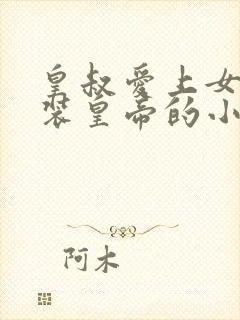 皇叔愛上女
裝皇帝的小
阿木